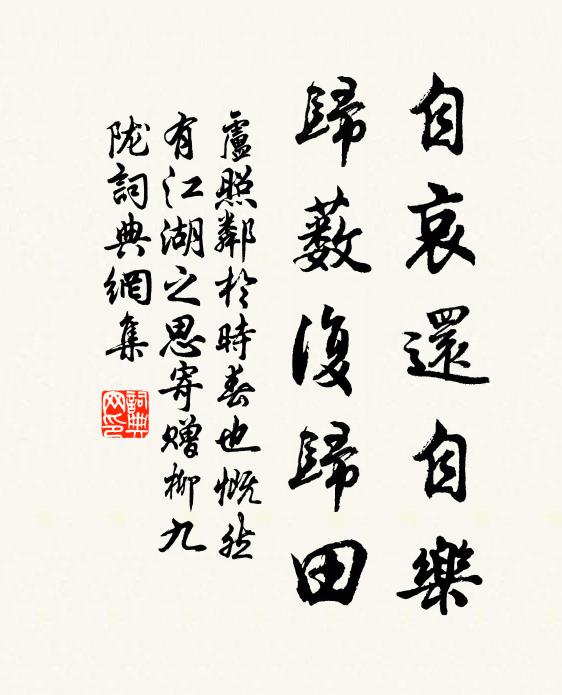 自哀還自樂
歸薮復歸田
盧照鄰於時春也慨然
有江湖之思寄赠柳九
陇詞典網集
詞典
网印